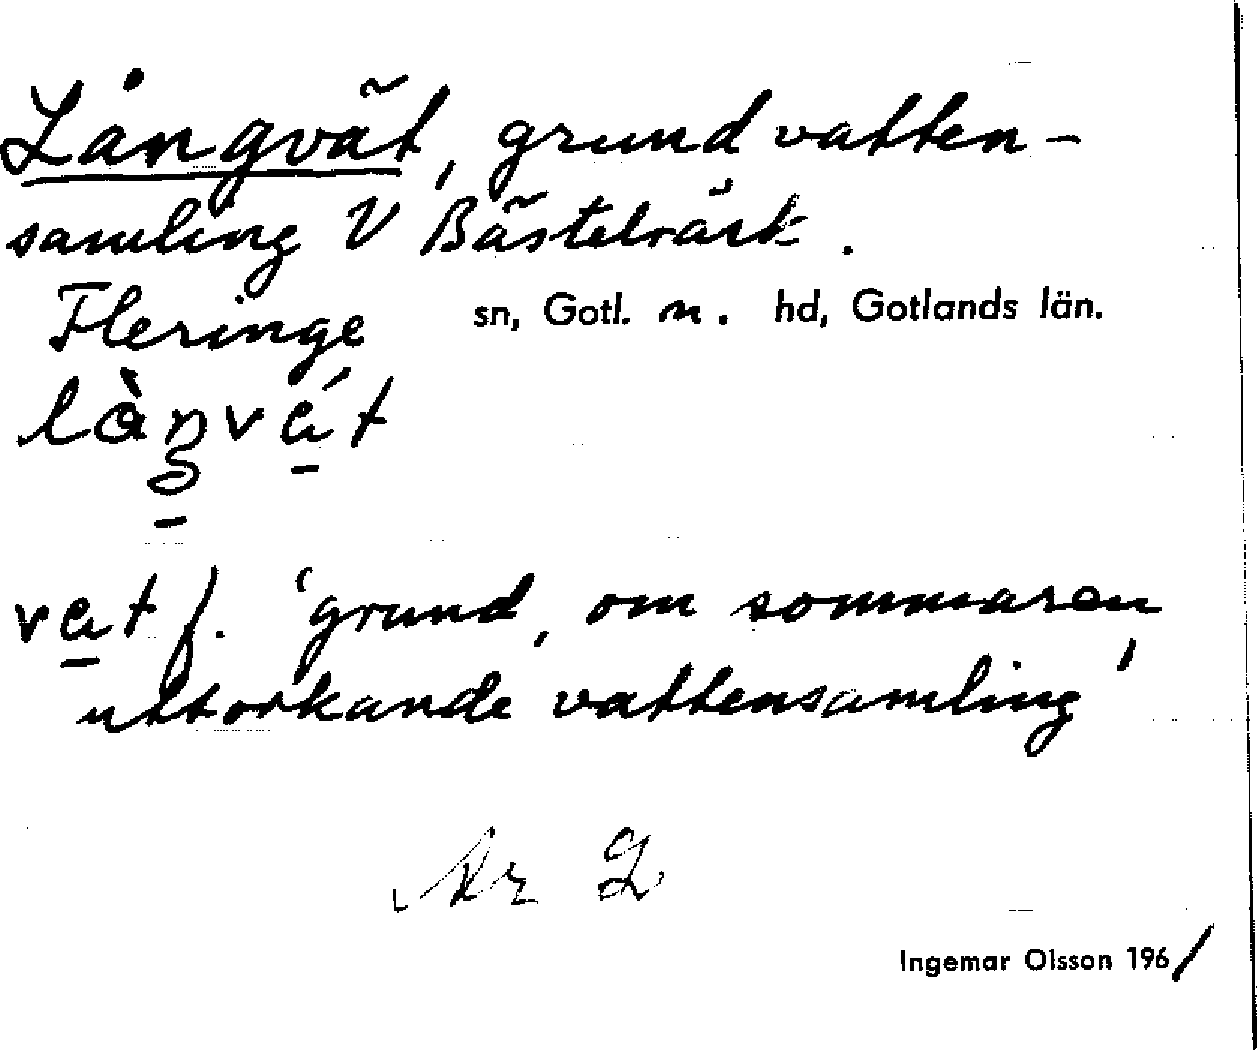 Långvät, grund vatten-
samling V Bästeträsk.
Fleringe sn, Gotl. n. hd, Gotlands län.
làŋvát
vat f. 'grund, om sommaren
uttorkande vattensamling'
Nr 2
Ingemar Olsson 1961